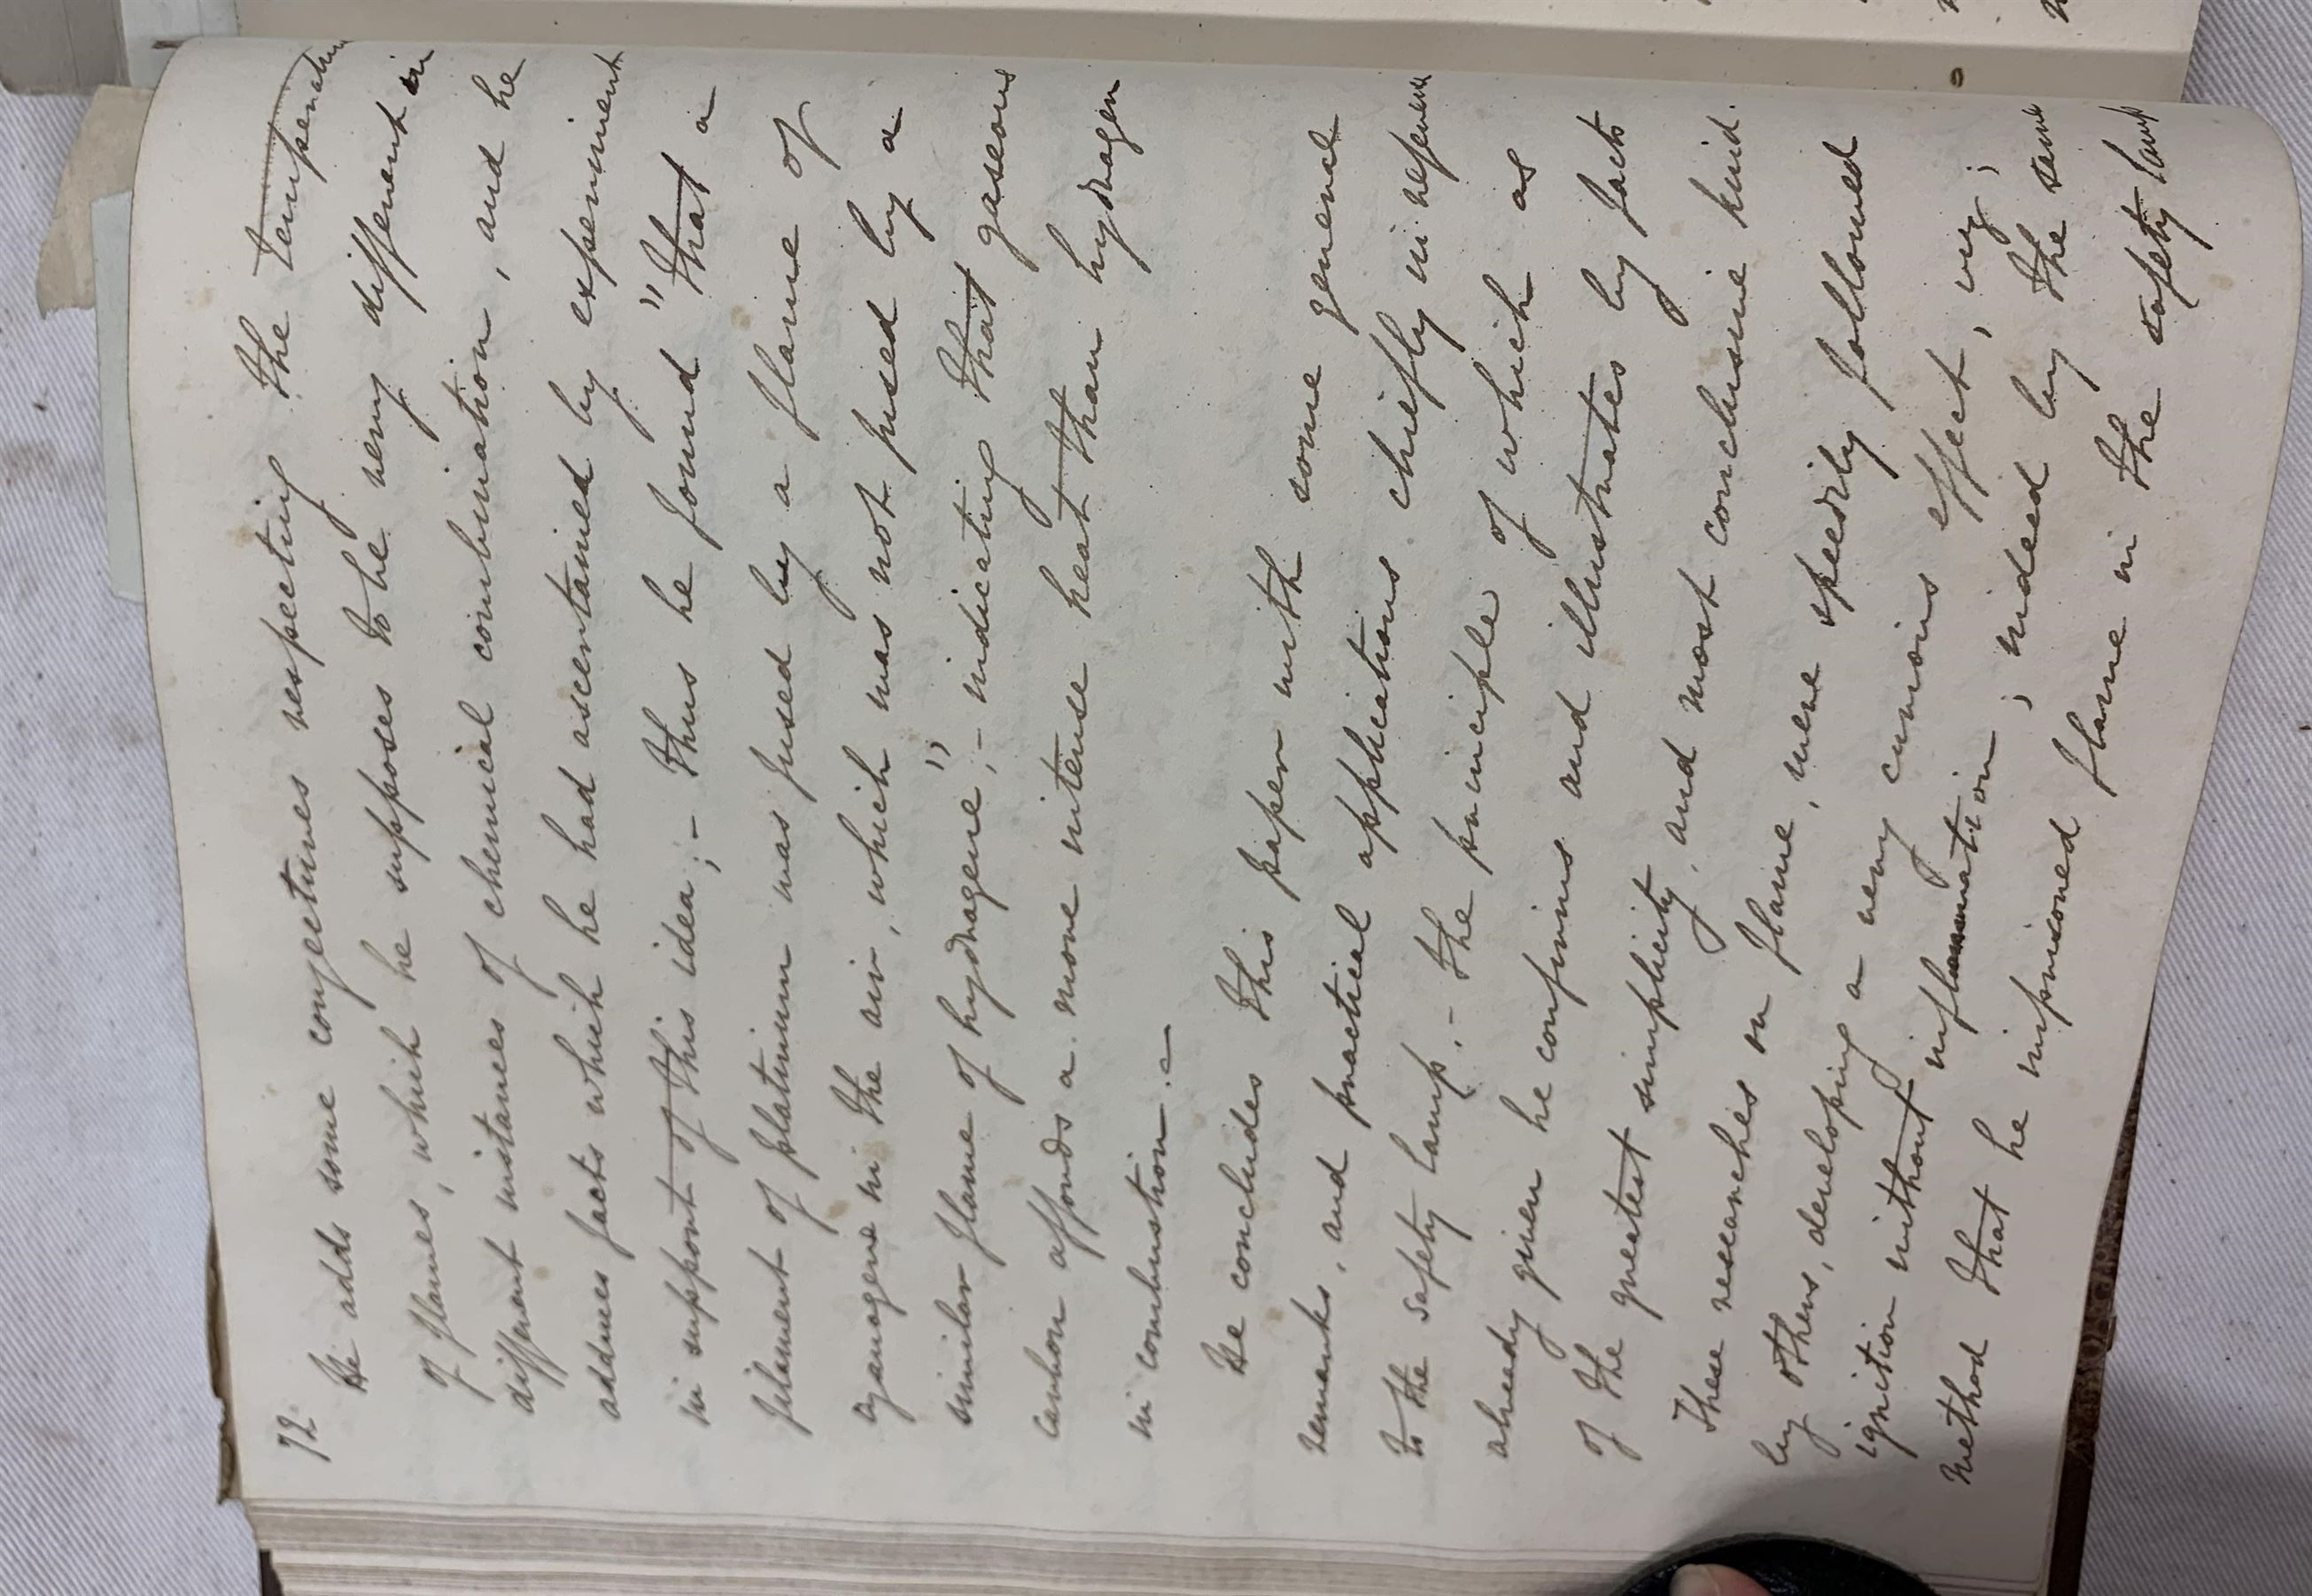 72
He adds some conjectures respecting the temperature
of flames, which he supposes to be very different in
different instances of chemical combination, and he
adduces facts which he had ascertained by experiment
in support of this idea;- thus he found "that a
filament of platinum was fused by a flame of
cyanogene in the air, which was not fused by a
similar flame of hydrogene",- indicating that gaseous
carbon affords a more intense heat than hydrogen
in combustion.-
He concludes this paper with some general
remarks, and practical applications chiefly in reference
to the safety lamp,- the principle of which as
already given he confirms and illustrates by facts
of the greatest simplicity, and most conclusive kind.
These researches on flame, were speedily followed
by others, developing a very curious effect, viz;
ignition without inflammation; indeed by the same
method that he imprisoned flame in the safety lamp